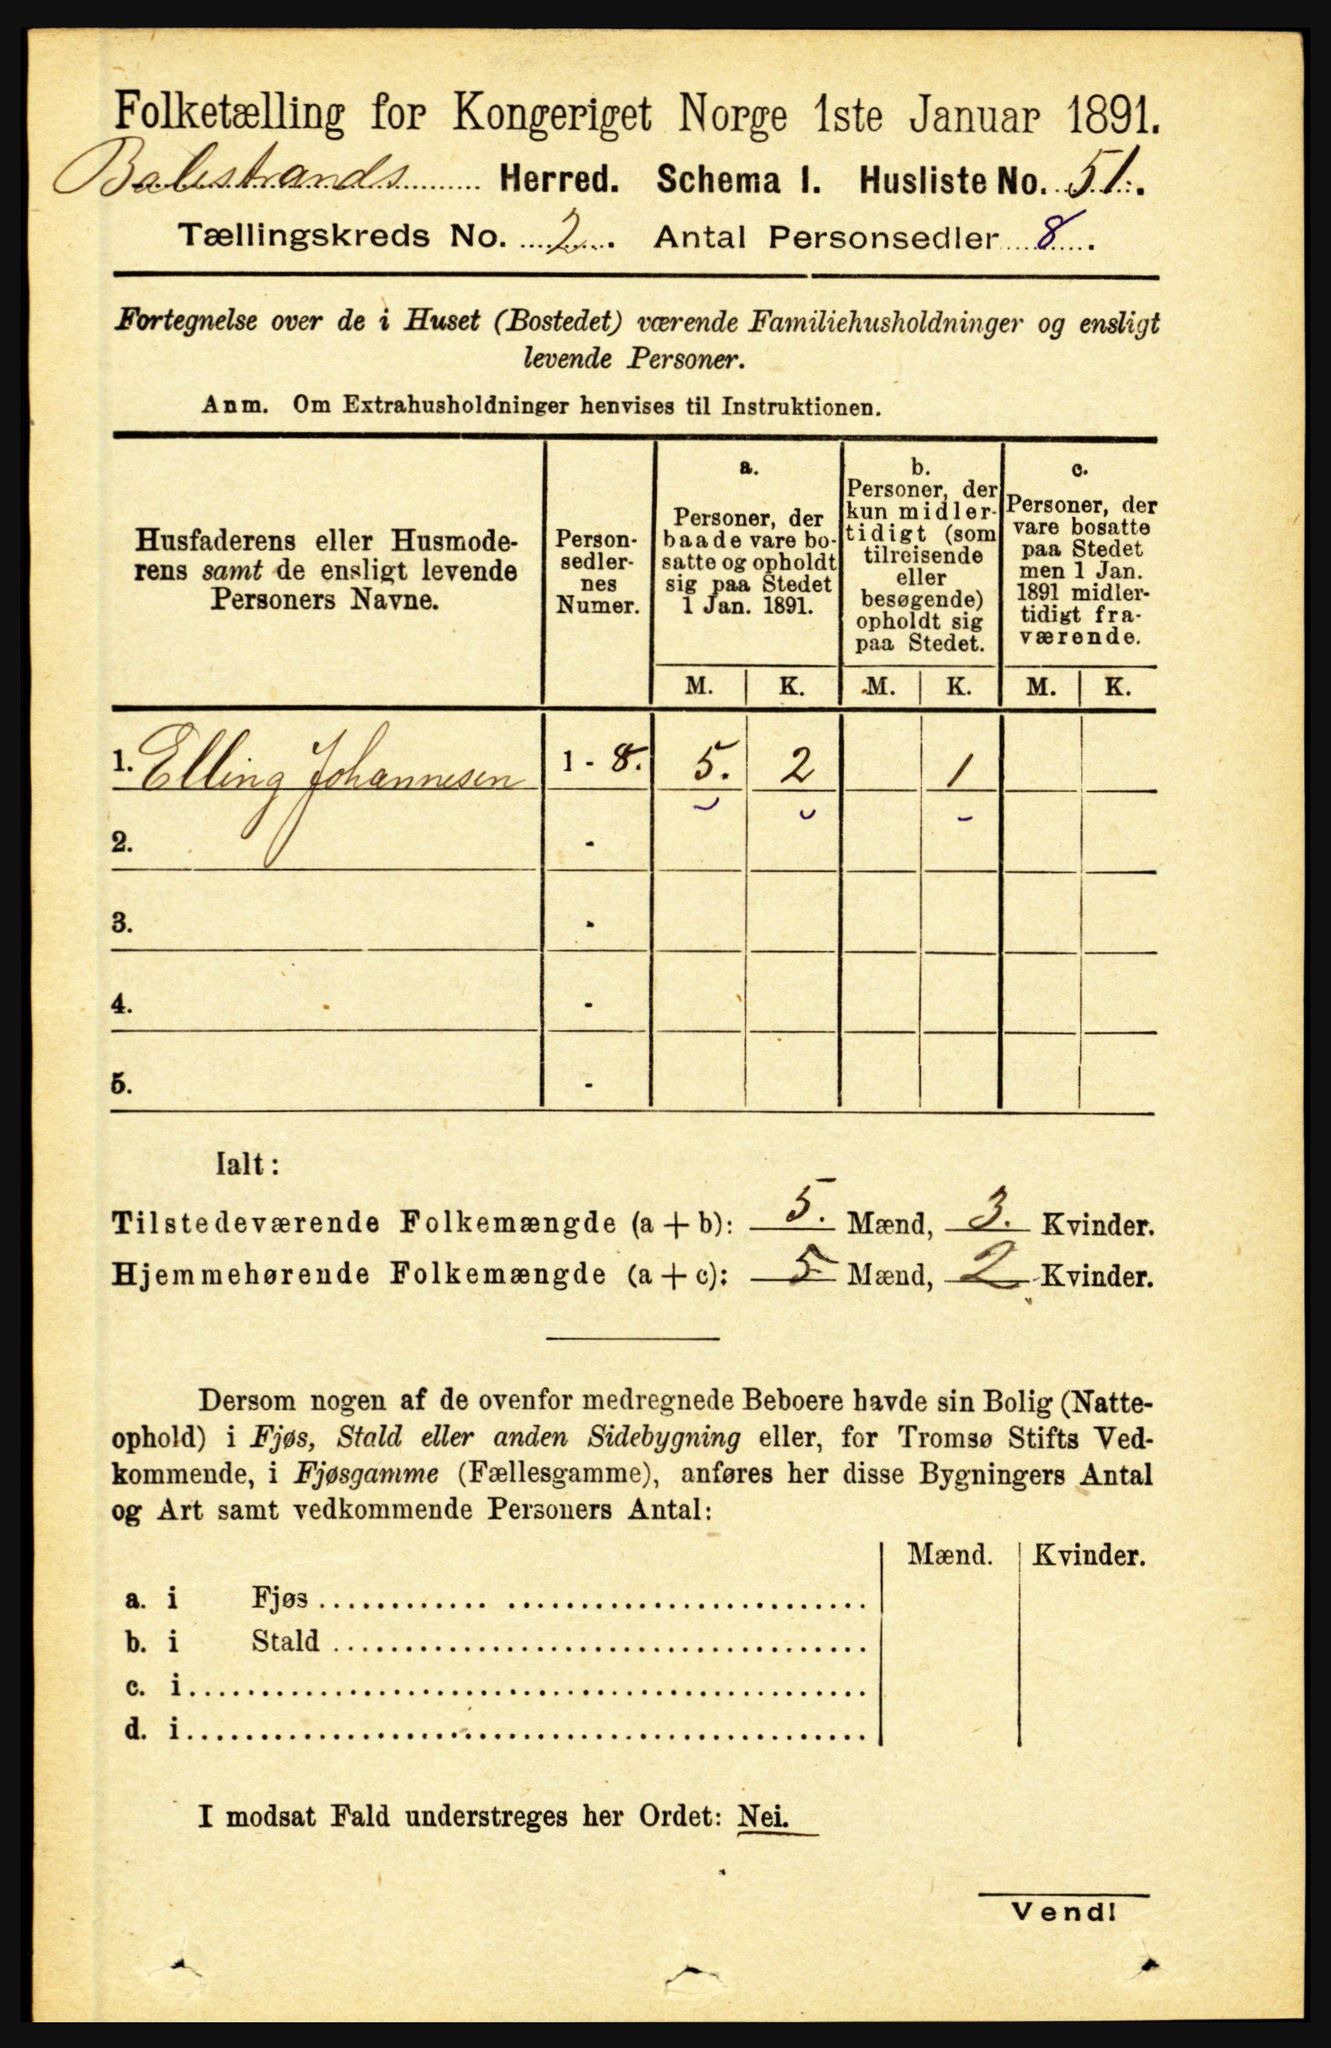 Folketælling for Kongeriget Norge 1ste Januar 1891.
Balestrands Herred. Schema 1. Husliste No. 51.
Tællingskreds No. 2. Antal Personsedler 8.
Fortegnelse over de i Huset (Bostedet) værende Familiehusholdninger og ensligt
levende Personer.
Anm. Om Extrahusholdninger henvises til Instruktionen.
Husfaderens eller Husmode-
rens samt de ensligt levende
Personers Navne.
Person-
sedler-
nes
Numer.
a.
Personer, der
baade vare bo-
satte og opholdt
sig paa Stedet
1 Jan. 1891.
b.
Personer, der
kun midler-
tidigt (som
tilreisende
eller
besøgende)
opholdt sig
paa Stedet.
c.
Personer, der
vare bosatte
paa Stedet
men 1 Jan.
1891 midler-
tidigt fra-
værende.
M. K. M. K. M. K.
1. Elling Johannesen 1 - 8. 5. 2 1
2. -
3. -
4. -
5. -
Ialt:
Tilstedeværende Folkemængde (a + b): 5. Mænd, 3. Kvinder.
Hjemmehørende Folkemængde (a + c): 5 Mænd, 2 Kvinder.
Dersom nogen af de ovenfor medregnede Beboere havde sin Bolig (Natte-
ophold) i Fjøs, Stald eller anden Sidebygning eller, for Tromsø Stifts Ved-
kommende, i Fjøsgamme (Fællesgamme), anføres her disse Bygningers Antal
og Art samt vedkommende Personers Antal:
Mænd. Kvinder.
a. i Fjøs
b. i Stald
c. i
d. i
I modsat Fald understreges her Ordet: Nei.
Vend!